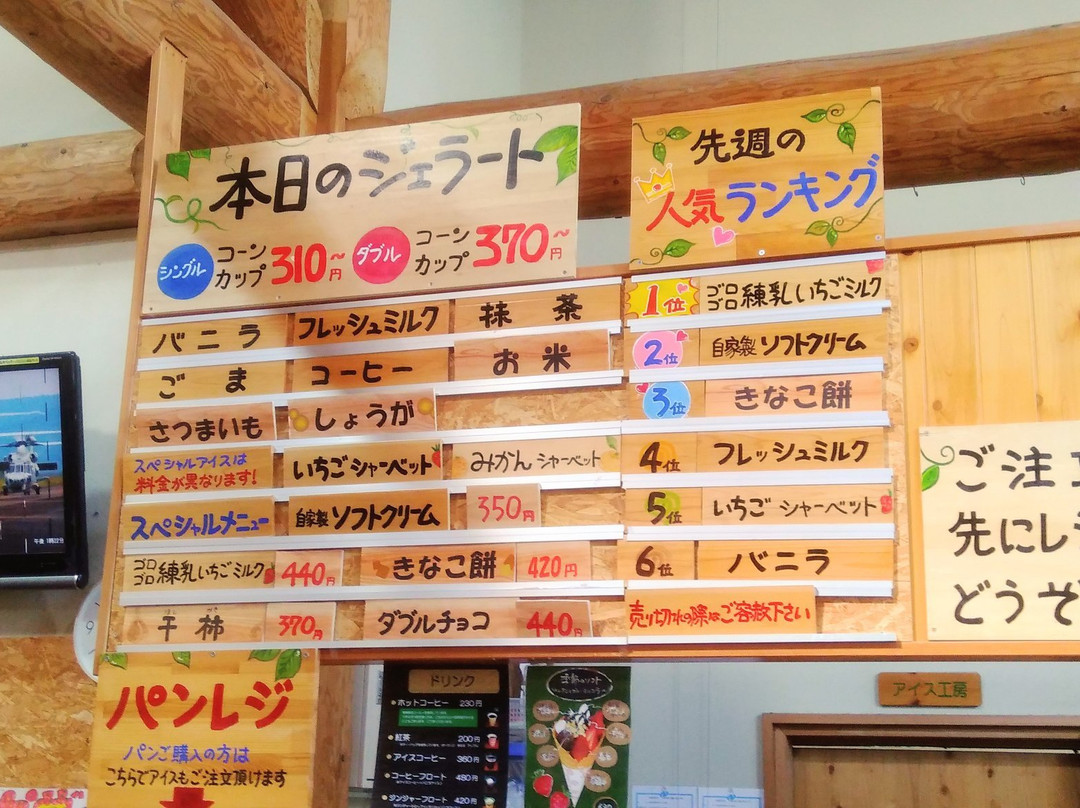 本日のジェラート
シングル コーン カップ 310円~
ダブル コーン カップ 370円~
バニラ フレッシュミルク 抹茶
ごま コーヒー お米
さつまいも しょうが
スペシャルアイスは
料金が異なります!
いちごシャーベット みかんシャーベット
スペシャルメニュー 自家製ソフトクリーム 350円
ゴロゴロ練乳いちごミルク 440円 きなこ餅 420円
干柿 370円 ダブルチョコ 440円
先週の
人気ランキング
1位 ゴロゴロ練乳いちごミルク
2位 自家製ソフトクリーム
3位 きなこ餅
4位 フレッシュミルク
5位 いちごシャーベット
6位 バニラ
売り切れの際はご容赦下さい
ご注
先にレ
どうぞ
パンレジ
パンご購入の方は
こちらでアイスもご注文頂けます
ドリンク
ホットコーヒー 230円
紅茶 200円
アイスコーヒー 360円
コーヒーフロート 480円
ジンジャーフロート 420円
アイス工房